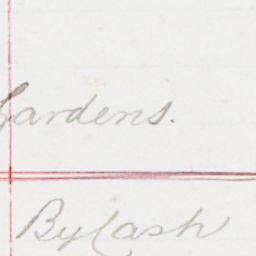 Gardens.
By Cash